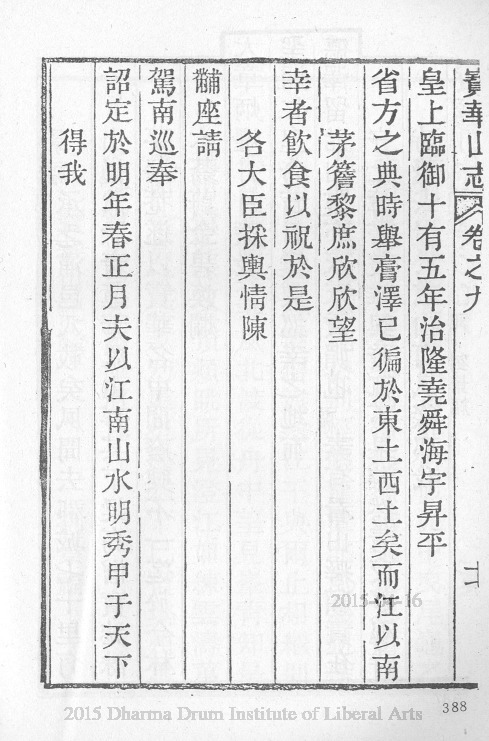 寶華山志 卷之九 十一
皇上臨御十有五年治隆堯舜海宇昇平
省方之典時舉膏澤已徧於東土西土矣而江以南
茅簷黎庶欣欣望
幸者飲食以祝於是
各大臣採輿情陳
黼座請
駕南巡奉
詔定於明年春正月夫以江南山水明秀甲于天下
得我
388
2015 Dharma Drum Institute of Liberal Arts